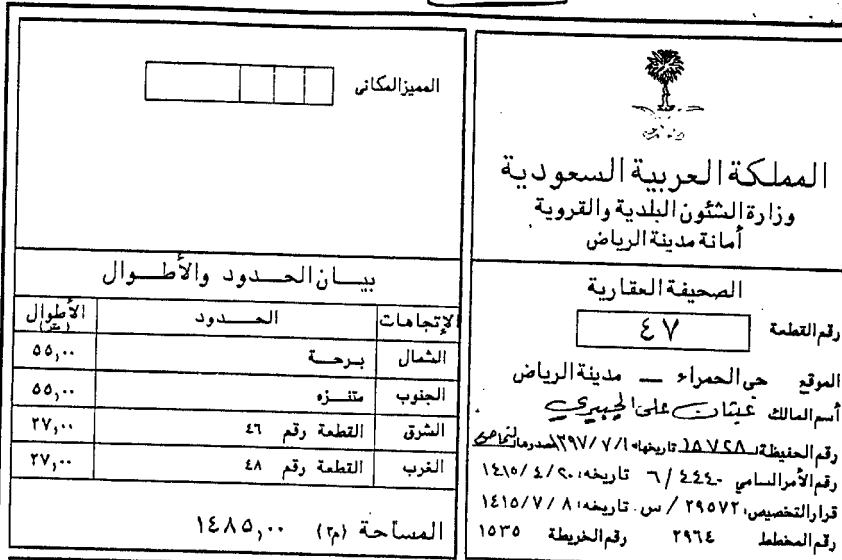 المملكة العربية السعودية
وزارة الشئون البلدية والقروية
أمانة مدينة الرياض
الصحيفة العقارية
رقم القطعة ٤٧
الموقع حى الحمراء — مدينة الرياض
أسم المالك على
رقم الحفيظة ١٥٧٢٨ تاريخها ١٣٩٧/٧/١
رقم الأمر السامي ٤٤٤٠ / ٦ تاريخه ١٤١٥/٤/٢٠
قرار التخصيص ٢٩٥٧٢ / س تاريخه ١٤١٥/٧/٨
رقم المخطط ٢٩٦٤ رقم الخريطة ١٥٣٥
المميز المكانى
بيــان الحــدود والأطــوال
الإتجاهات الحــــدود الأطوال (متر)
الشمال برحــة ٥٥,٠٠
الجنوب متنــزه ٥٥,٠٠
الشرق القطعة رقم ٤٦ ٢٧,٠٠
الغرب القطعة رقم ٤٨ ٢٧,٠٠
المساحة (م٢) ١٤٨٥,٠٠